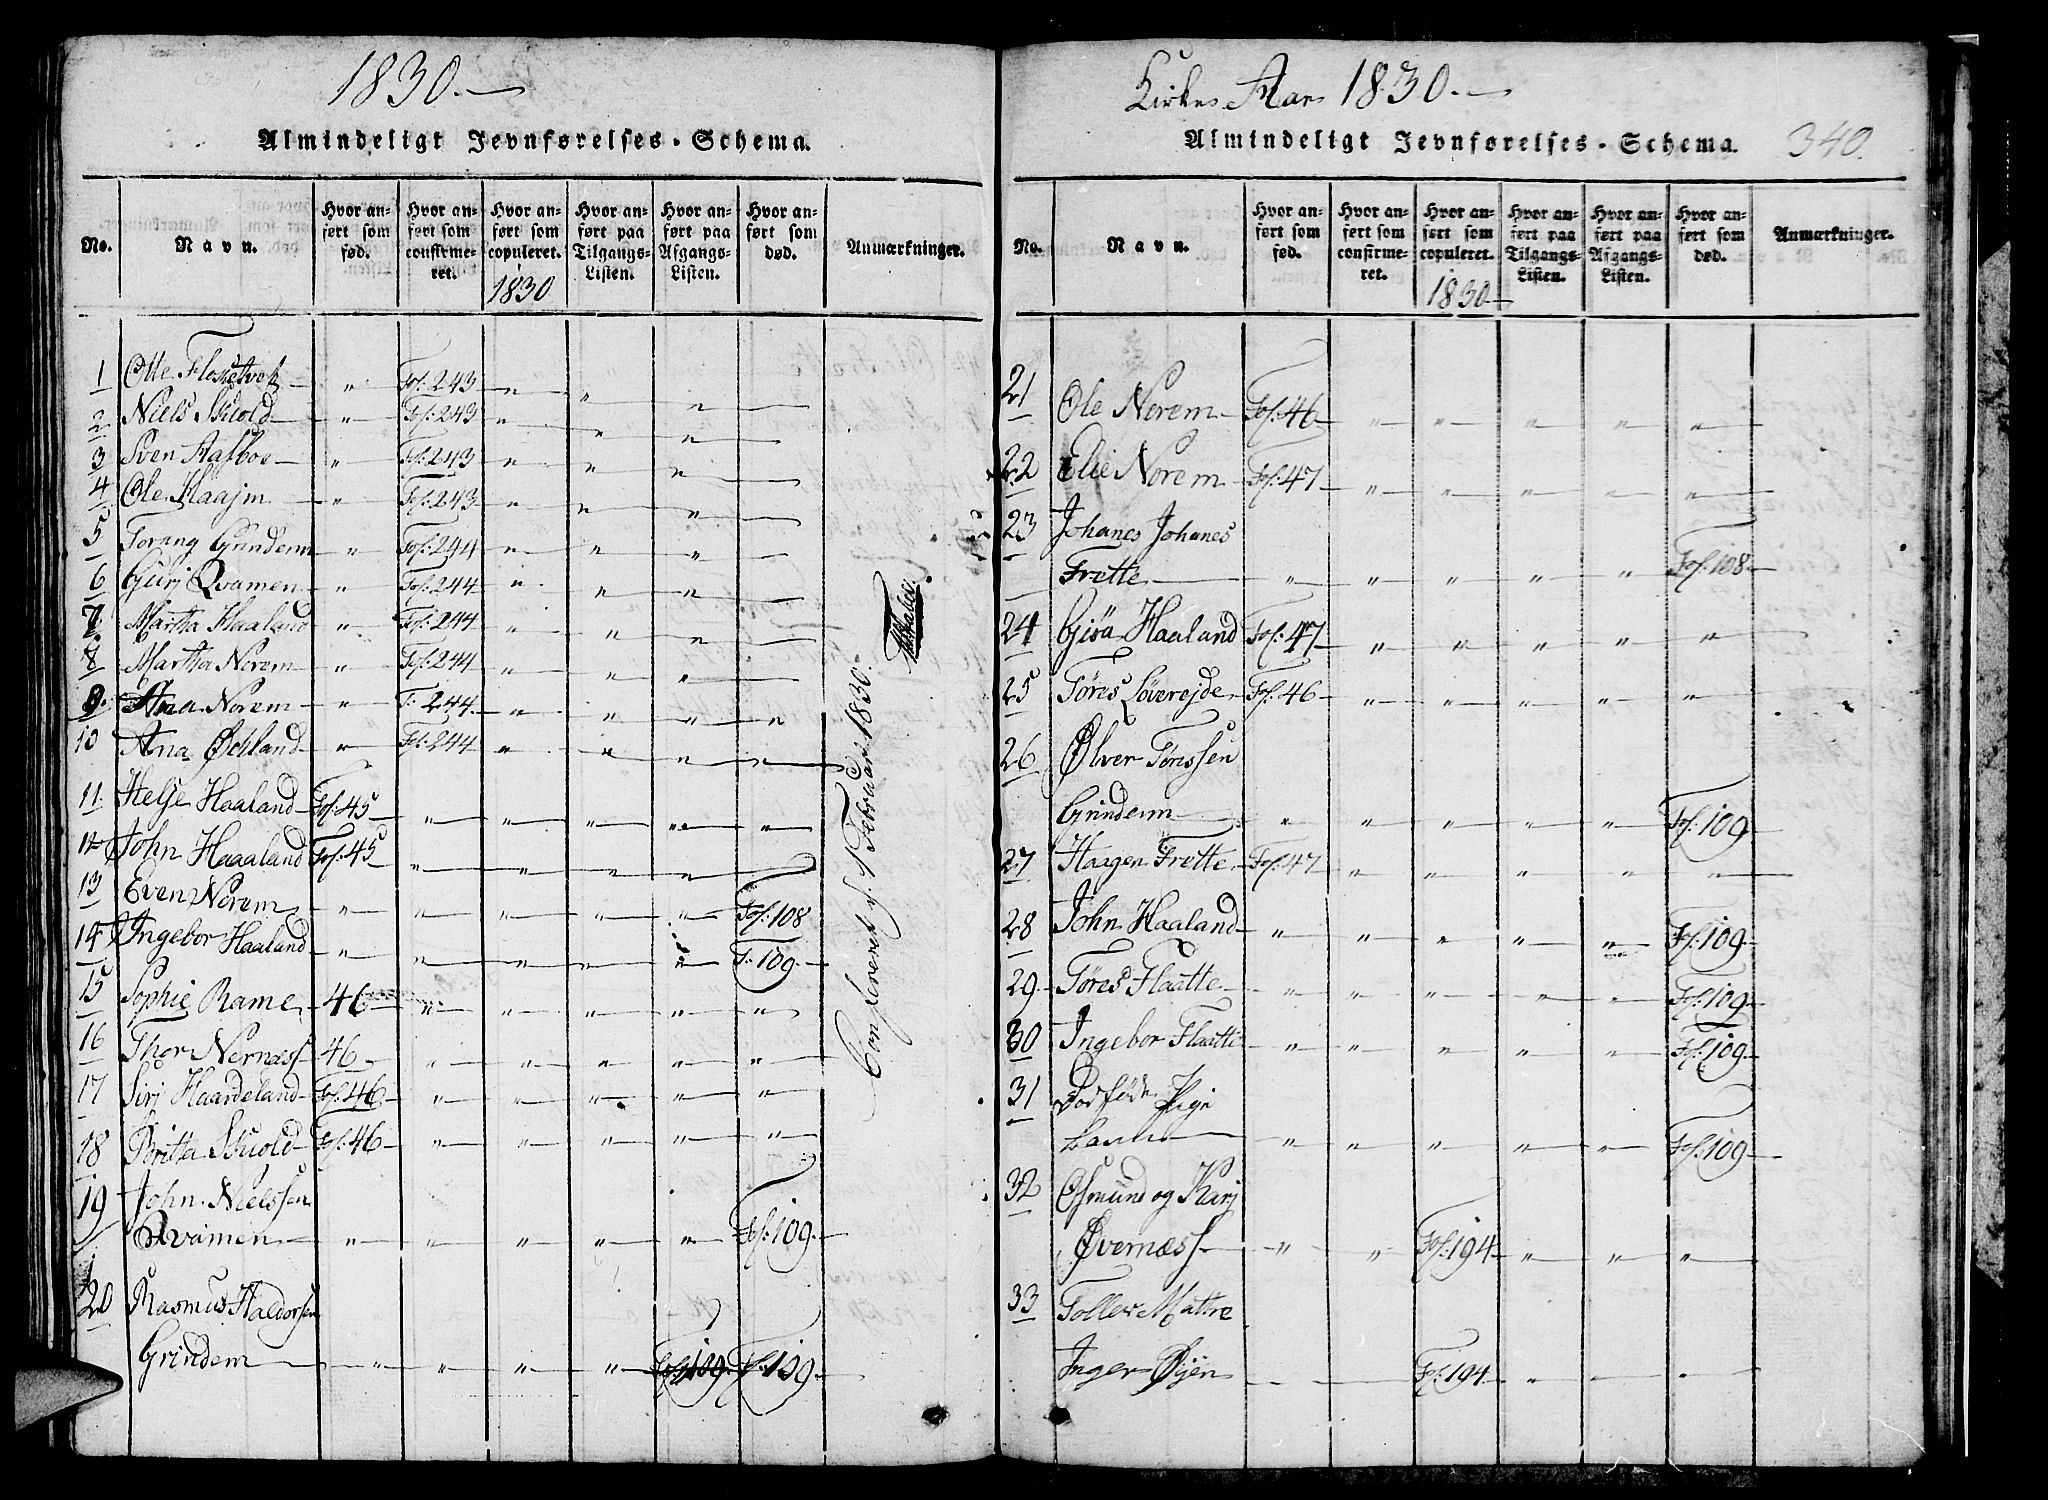 1830.
Almindeligt Jevnførelses-Schema.
No.
Navn.
Hvor anført som fød.
Hvor anført som confirmeret.
Hvor anført som copuleret. 1830
Hvor anført paa Tilgangs-Listen.
Hvor anført paa Afgangs-Listen.
Hvor anført som død.
Anmærkninger.
1 Otte " Fol: 243 " " "
2 Niels Skiold " Fol: 243 " " "
3 Sven Aasboe " Fol: 243 " " "
4 Ole " Fol: 243 " " "
5 Grindem " Fol: 244 " " "
6 Gurj Qvamen " Fol: 244 " " "
7 Martha Haaland " Fol: 244 " " "
8 Martha Norem " Fol: 244 " "
9. Ana Norem " F: 244 " " " "
10 Ana Øchland " Fol: 244 " " "
11 Helje Haaland Fol: 45 " " " " "
12 John Haaland Fol: 45 " " " "
13 Even Norem " " " " " Fol: 108
14 Ingebor Haaland " " " " " F: 109.
15 Sophie Rame 46 " " " " "
16 Thor Nernæss 46 " " " " "
17 Sirj Haardeland Fol: 46 " " " " "
18 Britta Skiold Fol: 46 " " " " "
19 John Nielssen
Qvamen " " " " " Fol: 109.
20 Rasmus Haldorsen
Grindem " " " " Fol: 109
Confereret d. 1 Februar 1830.
Kirke Aar 1830.
340.
Almindeligt Jevnførelses-Schema.
No.
Navn.
Hvor anført som fød.
Hvor anført som confirmeret.
Hvor anført som copuleret. 1830
Hvor anført paa Tilgangs-Listen.
Hvor anført paa Afgangs-Listen.
Hvor anført som død.
Anmærkninger.
21 Ole Norem Fol: 46 " " " " "
22 Elie Norem Fol: 47 " " " " "
23 Johanes Johanes
Frette " " " " " Fol: 108
24 Gisa Haaland Fol: 47 " " " " "
25 Tøres Løvereide Fol: 46 " " " " "
26 Ølver Tøressen
Grindem " " " " " Fol: 109
27 Haagen Frette Fol: 47 " " " " "
28 John Haaland " " " " " Fol: 109
29. Tøres Flaatte " " " " " Fol: 109
30 Ingebor Flaatte " " " " " Fol: 109
31 Dødfødt Pige
" " " " " Fol: 109
32 Osmund og Karj
Øvernæss " " Fol: 194 " " "
33 Tollev Mattre
Inger Øyen Fol: 194 " "